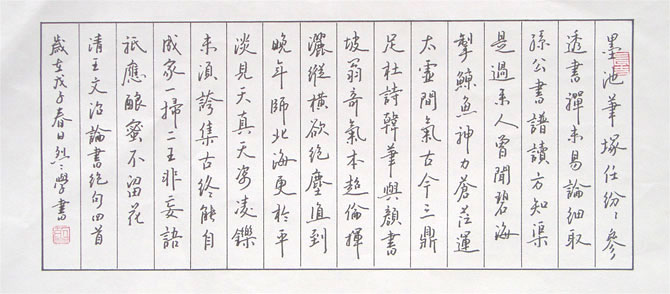 墨池筆塚任紛〻參
透書禪未易論細取
孫公書譜讀方知渠
是過來人曾聞碧海
掣鯨魚神力蒼茫運
太虛間氣古今三鼎
足杜詩韓筆與顏書
坡翁奇氣本超倫揮
灑縱橫欲絕塵直到
晚年師北海更於平
淡見天真天姿凌鑠
未須誇集古終能自
成家一掃二王非妄語
祇應釀蜜不留花
清王文治論書絕句四首
歲在戊子春日烈〻學書